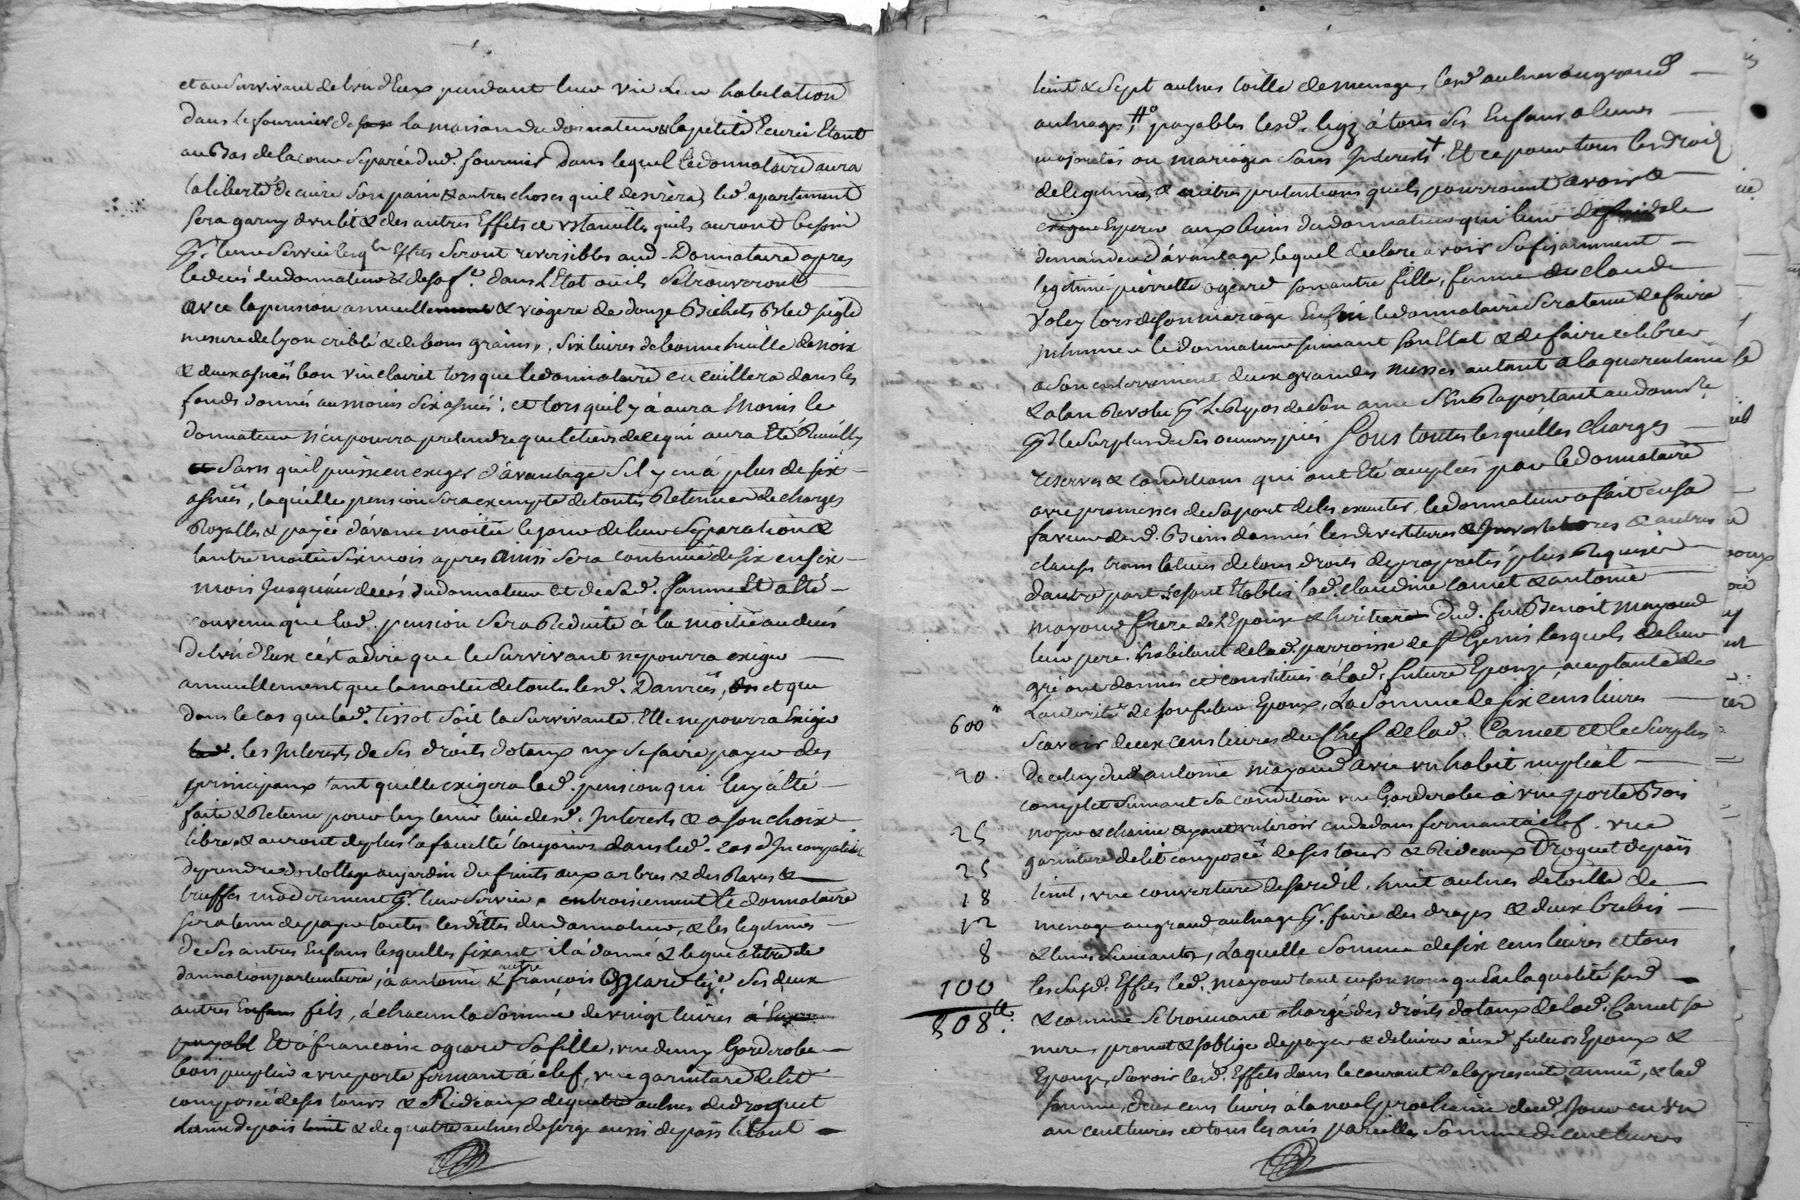 et au Survivant de l'un d'Eux pendant leur vie Leur habitation
dans le fournier de la maison du donnateur & la petite Ecurie Etant
au Bas de la cour Separée dud. fournier dans lequel le donnataire aura
la liberté de cuire Son pain & autres choses quil desirera, led. apartement
Sera garny d'un lit & des autres Effets et Ustancilles quils auront besoin
pr. leur Service lesqls Effets Seront reversibles aud. Donnataire apres
le decés du donnateur & de saf.e dans l'Etat ou ils Se trouveront
avec la pension annuelle & viagere de douze Bichets Bled seigle
mesure de lyon criblé & de bons grains, Six livres de bonne huille de noix
& deux asnées bon vin clairet lorsque le donnataire en ceuillera dans les
fonds donnés au moins Six asnées. et lors quil y à aura Moins le
donnateur n'en pourra pretendre que le tiers de ce qui aura Eté Recuilly
Sans quil puisse en exiger d'avantage S'il y en à plus de six
asnées, laquelle pension Sera exempte de toutes Retenues de charges
Royalles & payée d'avance moitié le jour de leur Separation &
l'autre moitié Six mois apres ainsi Sera continué de six en six
mois Jusqu'au décés du donnateur et de Sad. femme Et a Eté
convenu que lad. pension Sera Reduite à la moitié au decés
De l'un d'Eux c'est adire que le Survivant ne pourra exiger
annuellement que la moitié de toutes lesd. Danrées, et que
dans le cas que lad. tissot Soit la Survivante, Elle ne pourra Exiger
les Interests de Ses droits dotaux ny Se faire payer des
principaux tant quelle exigera lad. pension qui luy à Eté
faite & Retenue pour luy tenir lieu desd. Interests & a son choix
libre, & auront deplus la faculté toujours dans led. cas d'Incompatibilité
de prendre du jardin du fruits aux arbres & des Raves &
truffes moderement pr. leur Service, en troisiement le donnataire
Sera tenu de payer toutes les dettes du donnateur, & les legitimes
de Ses autres Enfans lesquelles fixant il à donné & legue a titre de
donnation particuliere, à antoine & autre françois Ogeard Ses deux
autres fils, à chacun la Somme de vingt livres
Et à francoise ogeard Sa fille, une demy Garderobe
bois peuplier a une porte fermant à clef, une garniture de lit
composée de ses tours & Rideaux de quatre aulnes de droguet
Laine depais & de quatre aulnes de serge aussi depais le tout
teint & Sept aulnes toille de menage, lesd. aulnes au grand
aulnage, payables lesd. legs à tous Ses Enfans a leurs
majorités ou mariages Sans Interests. Et ce pour tous les droits
de legitime & autres pretentions quils pourroient avoir &
Esperer aux biens du donnateur qui leur
demander d'avantage, lequel declare avoir Sufisamment
legitimé pierrette ogeard son autre fille, femme de claude
Voley lors de son mariage Enfin le donnataire Sera tenu de faire
inhumer le donnateur suivant Son Etat & de faire celebrer
a Son enterrement deux grandes messes autant à la quarantaine
& a l'an Revolu pr. Le Repos de Son ame S'En Raportant au donn.re
pr. le Surplus de Ses oeuvres pies Sous toutes lesquelles charges
reserves & conditions qui ont Eté acceptées par le donnataire
avec promesses de Sa part de les executer, le donnateur a fait en sa
faveur desd. Biens donnés les devestitures & & autres
clauses translatives de tous droits de proprietés plus Requises
D'autre part Se sont Etablis lad. claudine Carnet & antoine
mayoud frere de l'Epouse & heritiere Dud. feu Benoit mayoud
leur pere habitant de lad. parroisse de St Genis lesquels de leur
gré ont donnés et constitués à lad. future Epouze, acceptante de
L'autorité de Son futur Epoux, La Somme de six cens livres
600tt
Scavoir deux cens livres du chef de lad. Carnet et le Surplus
de celuy dud. antoine mayoud avec un habit nuptial
20.
complet Suivant Sa condition une Garderobe a une porte Bois
noyer & chaine ayant un tiroir en dedans fermant à clef. une
25
garniture de lit composée de ses tours & Rideaux Droguet depais
25
teint, une couverture de sardil, huit aulnes de toille de
18
menage au grand aulnage pr. faire des draps & deux brebis
12
& leurs Suivantes, Laquelle Somme de six cens livres et tous
8
les Susd. Effets led. mayoud tant en son nom qu'En la qualité Susd.
100
& comme Se trouvant chargé des droits dotaux de lad. Carnet sa
808tt.
mere, promet & soblige de payer & delivrer auxd. futurs Epoux &
Epouze, Scavoir lesd. Effets dans le courant de la presente année, & lad.
Somme, deux cens livres à la noel prochaine dud. Jour en un
an cent livres et tous les ans pareilles Sommes de cent livres